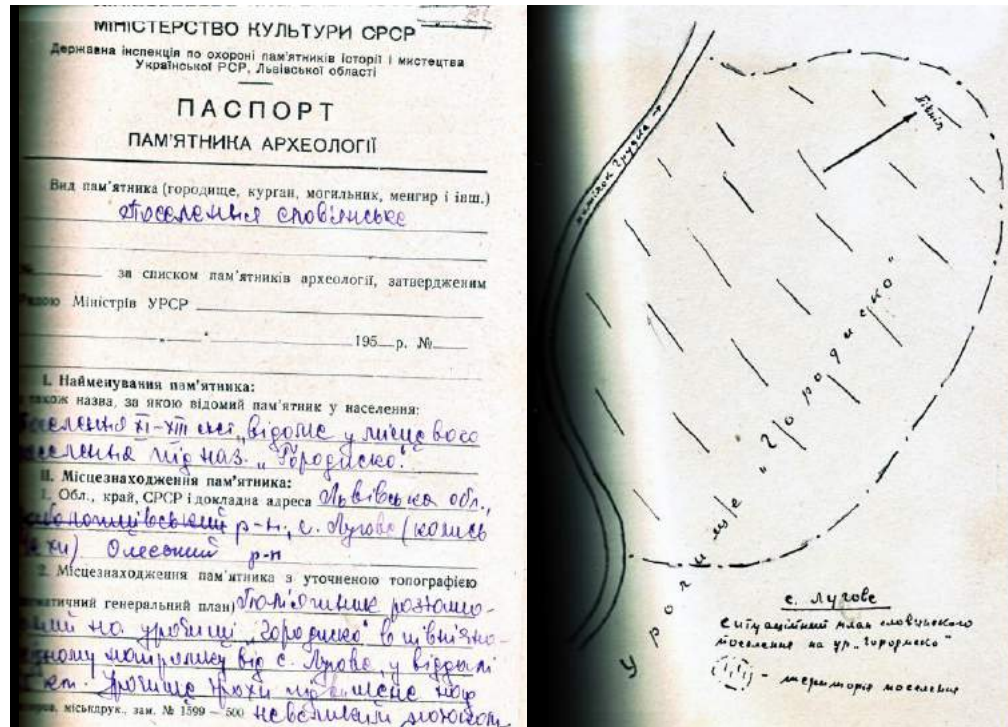 МІНІСТЕРСТВО КУЛЬТУРИ СРСР
Державна інспекція по охороні пам'ятників історії і мистецтва
Української РСР, Львівської області
ПАСПОРТ
ПАМ'ЯТНИКА АРХЕОЛОГІЇ
Вид пам'ятника (городище, курган, могильник, менгир і інш.)
Поселення слов'янське
за списком пам'ятників археології, затвердженим
Радою Міністрів УРСР
195 р. №
I. Найменування пам'ятника:
також назва, за якою відомий пам'ятник у населення:
поселення XI-XIII ст., відоме у місцевого
населення під наз. „Городиско".
II. Місцезнаходження пам'ятника:
1. Обл., край, СРСР і докладна адреса Львівська обл.,
р-н, с. Лугове (колись
) Олеський р-н
2. Місцезнаходження пам'ятника з уточненою топографією
матичний генеральний план) Пам'ятник розташо-
ний на урочищі „Городиско" в північно-
ному напрямку від с. Лугове, у віддалі
км. Урочище трохи підвищене над
міськдрук., зам. № 1599 — 500 невеликим
потічок Грудка
Північ
Урочище „Городиско"
с. Лугове
Ситуаційний план слов'янського
поселення на ур. „Городиско"
- територія поселення